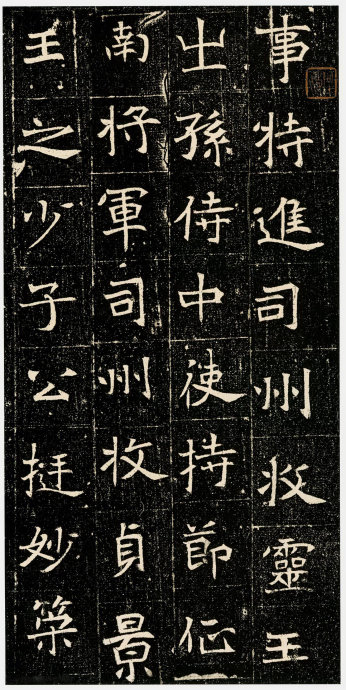 事特進司州牧靈王
之孫侍中使持節征
南將軍司州牧貞景
王之少子公挺妙䇿